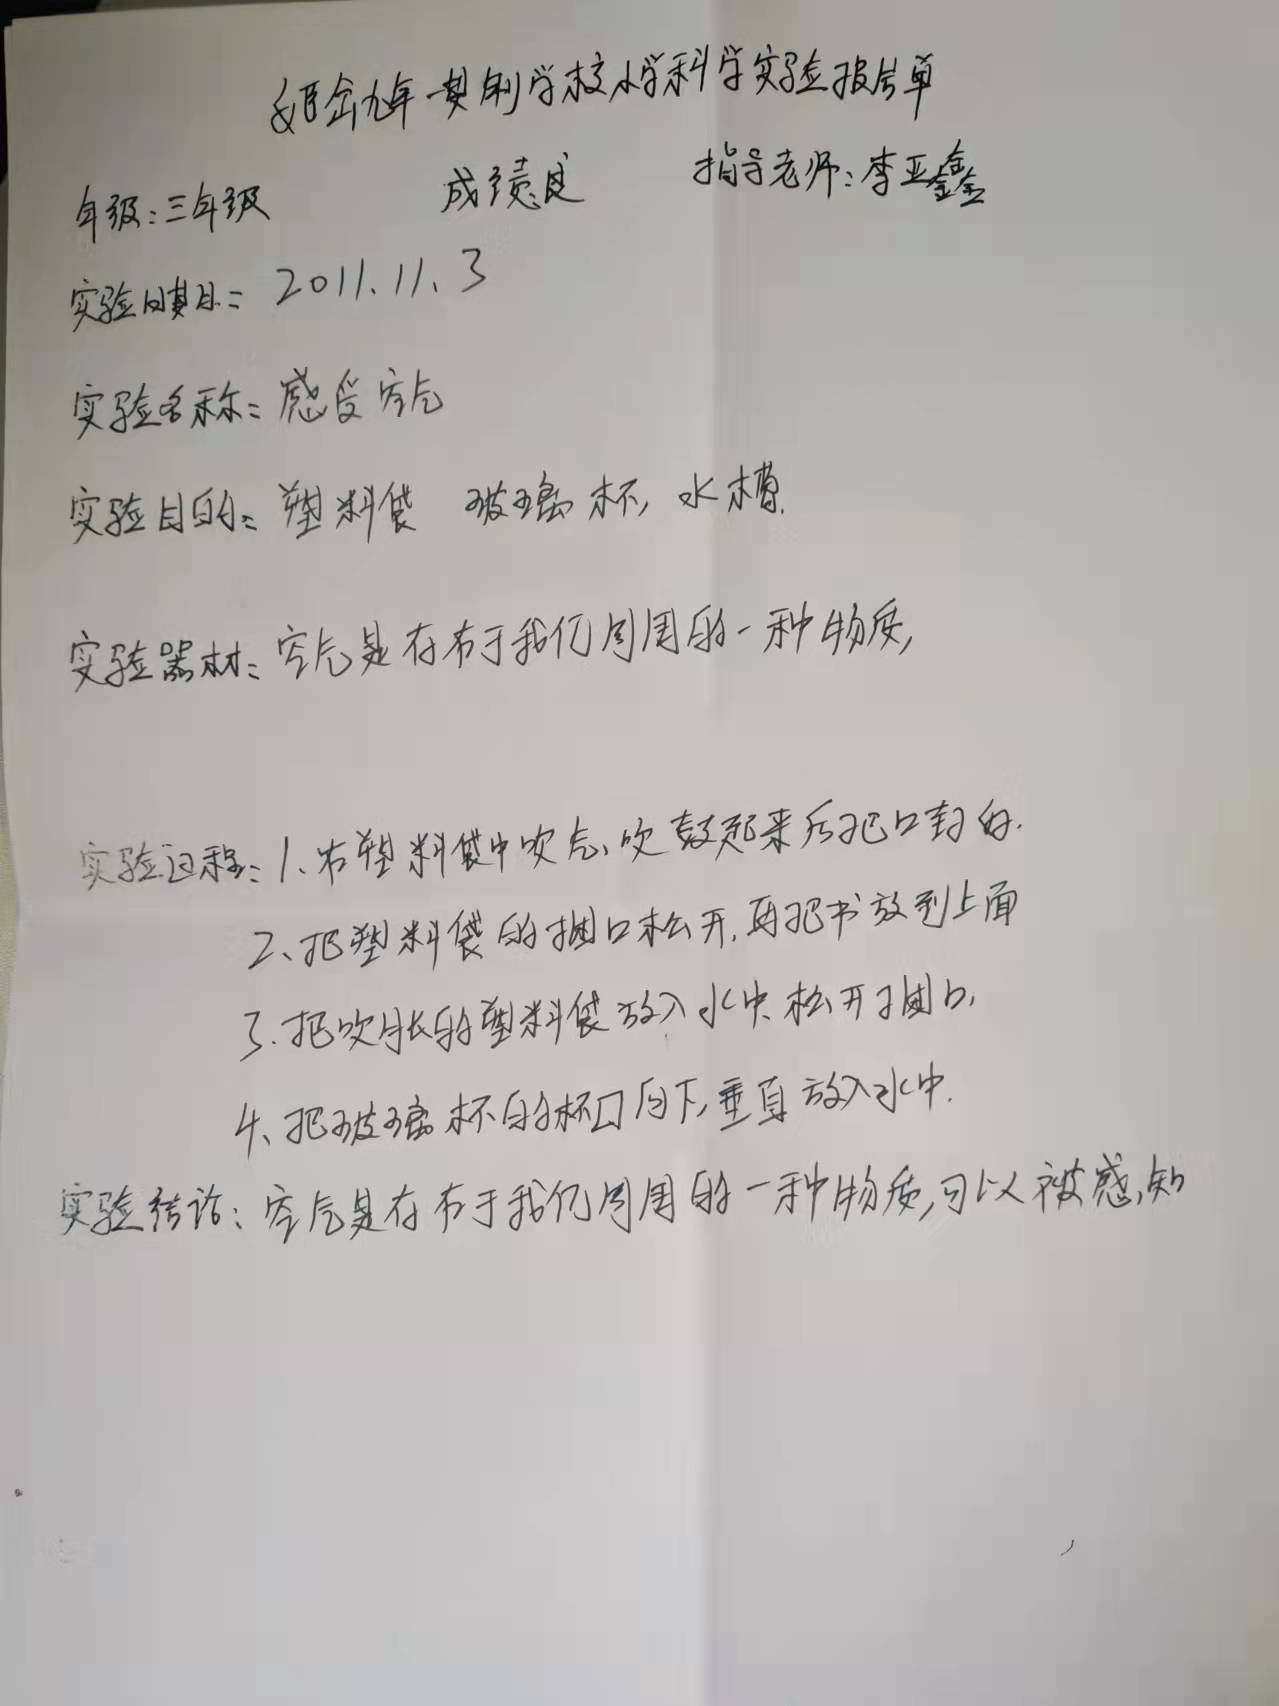 姬岔九年一贯制学校小学科学实验报告单
年级:三年级 成绩:良 指导老师:李亚鑫
实验日期: 2011.11.3
实验名称: 感受空气
实验目的: 塑料袋 玻璃杯, 水槽.
实验器材: 空气是存布于我们周围的一种物质,
实验过程: 1、右塑料袋中吹气,吹鼓起来后把口封的.
2、把塑料袋的捆口松开,再把书放到上面
3.把吹胀的塑料袋放入水中,松开捆口,
4、把玻璃杯的杯口向下,垂直放入水中.
实验结论: 空气是存布于我们周围的一种物质,可以被感知